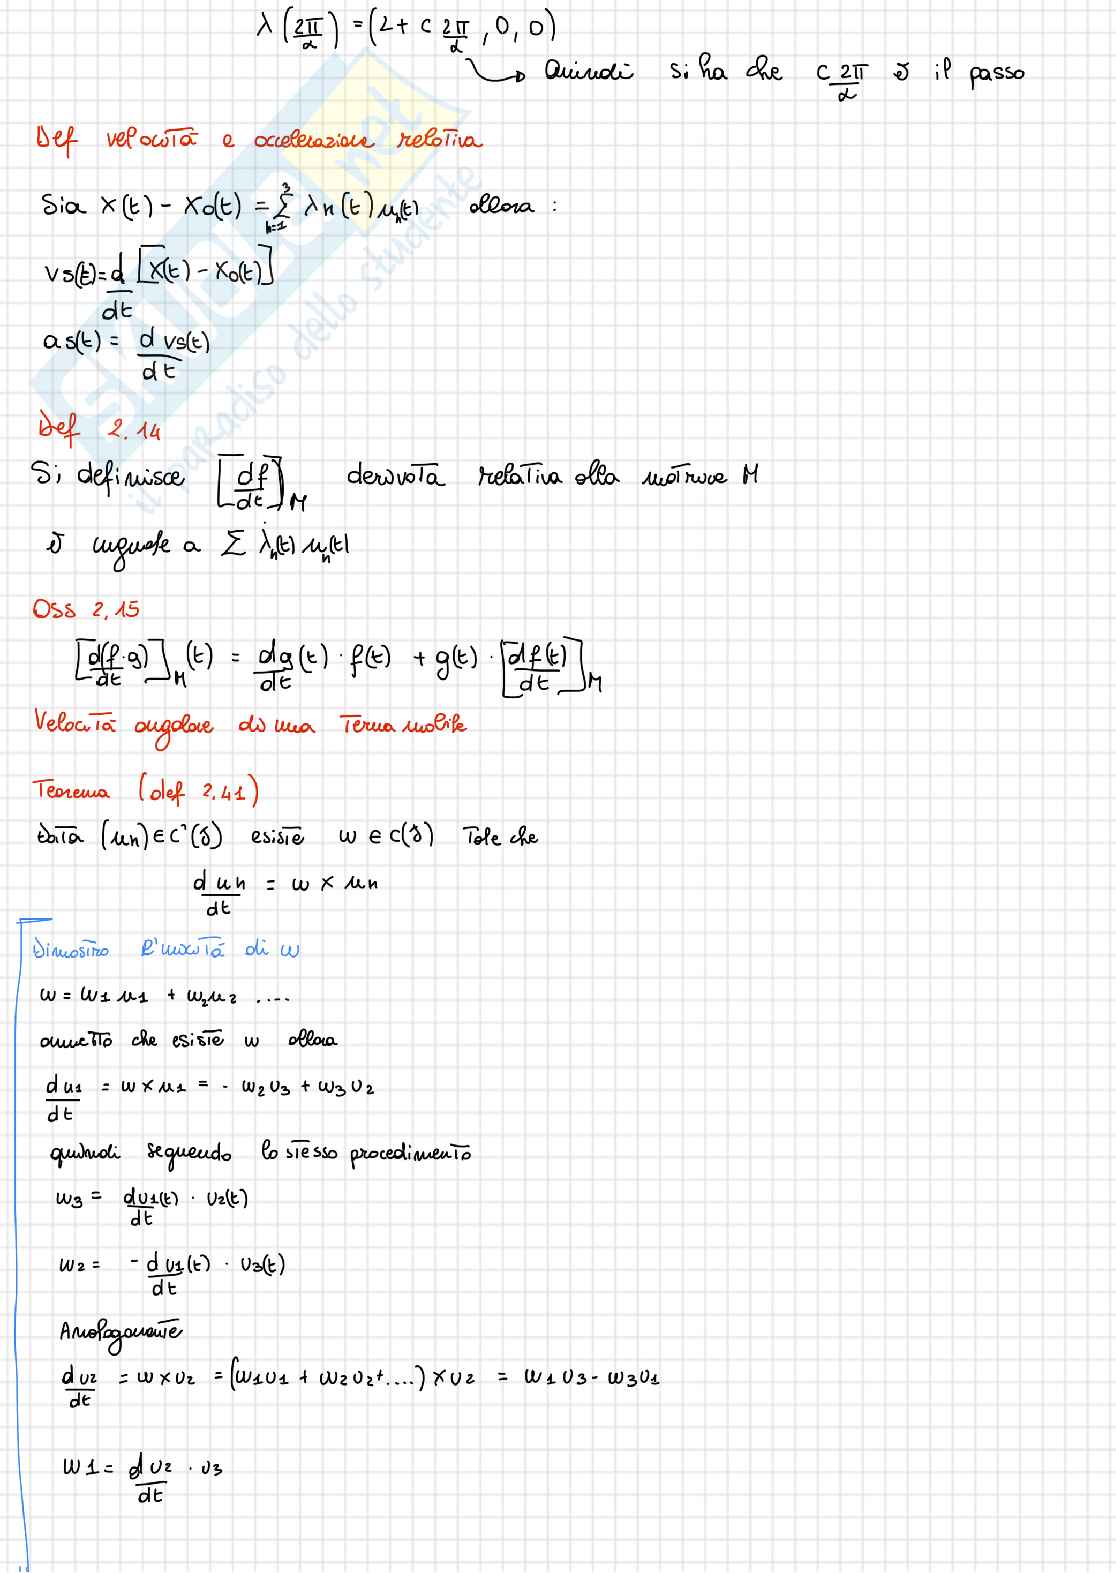 λ(2π/α) = (2 + c 2π/α, 0, 0)
Quindi si ha che c 2π/α è il passo
Def velocità e accelerazione relativa
Sia x(t) - xo(t) = Σ³ₕ₌₁ λh(t) uh(t) allora :
vs(t) = d/dt [x(t) - xo(t)]
as(t) = d vs(t)/dt
Def 2.14
Si definisce [df/dt]M derivata relativa alla matrice M
è uguale a Σ λ̇h(t) uh(t)
Oss 2,15
[d(f·g)/dt]M (t) = dg/dt (t) · f(t) + g(t) · [df(t)/dt]M
Velocità angolare di una Terna mobile
Teorema (def 2,41)
Data (uh) ∈ C¹(J) esiste w ∈ C(J) Tale che
d uh/dt = w × uh
Dimostro l'unicità di w
w = w1 u1 + w2 u2 ....
ammetto che esiste w allora
d u1/dt = w × u1 = - w2 u3 + w3 u2
quindi seguendo lo stesso procedimento
w3 = d u1(t)/dt · u2(t)
w2 = - d u1/dt (t) · u3(t)
Analogamente
d u2/dt = w × u2 = (w1 u1 + w2 u2 + ....) × u2 = w1 u3 - w3 u1
w1 = d u2/dt · u3
SKUOLA.net
il paradiso dello studente